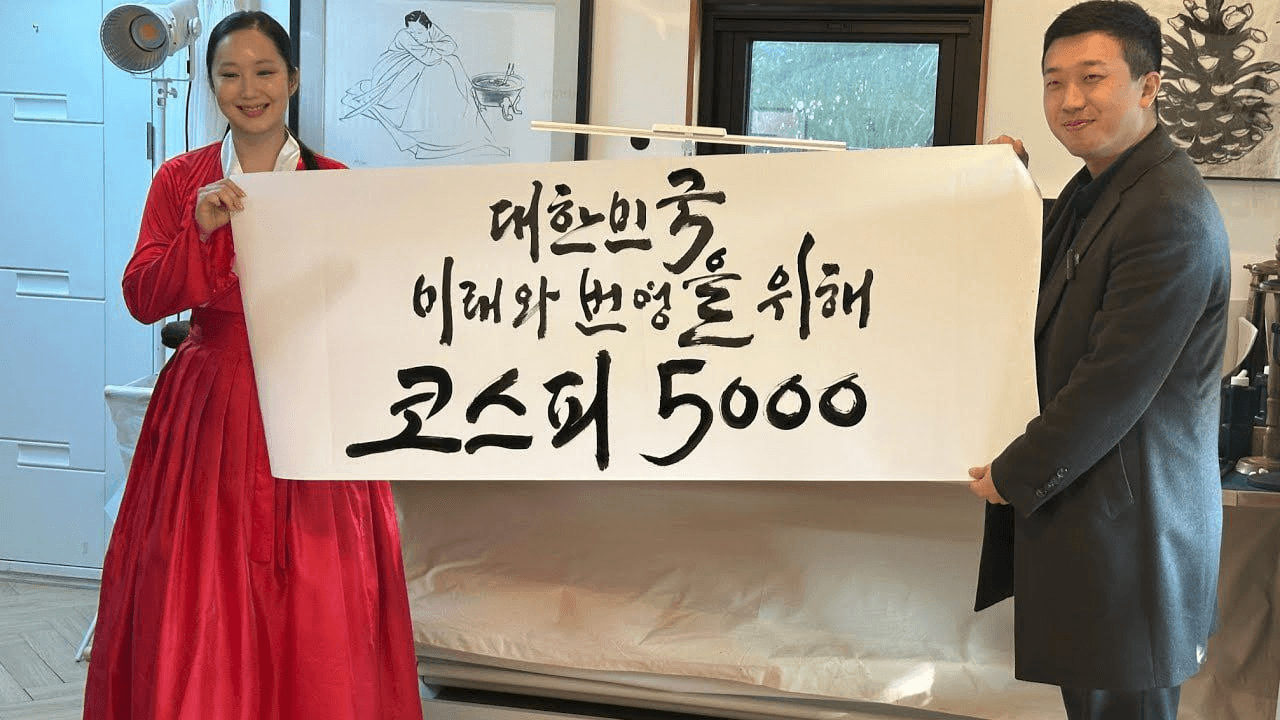 대한민국
미래와 번영을 위해
코스피 5000